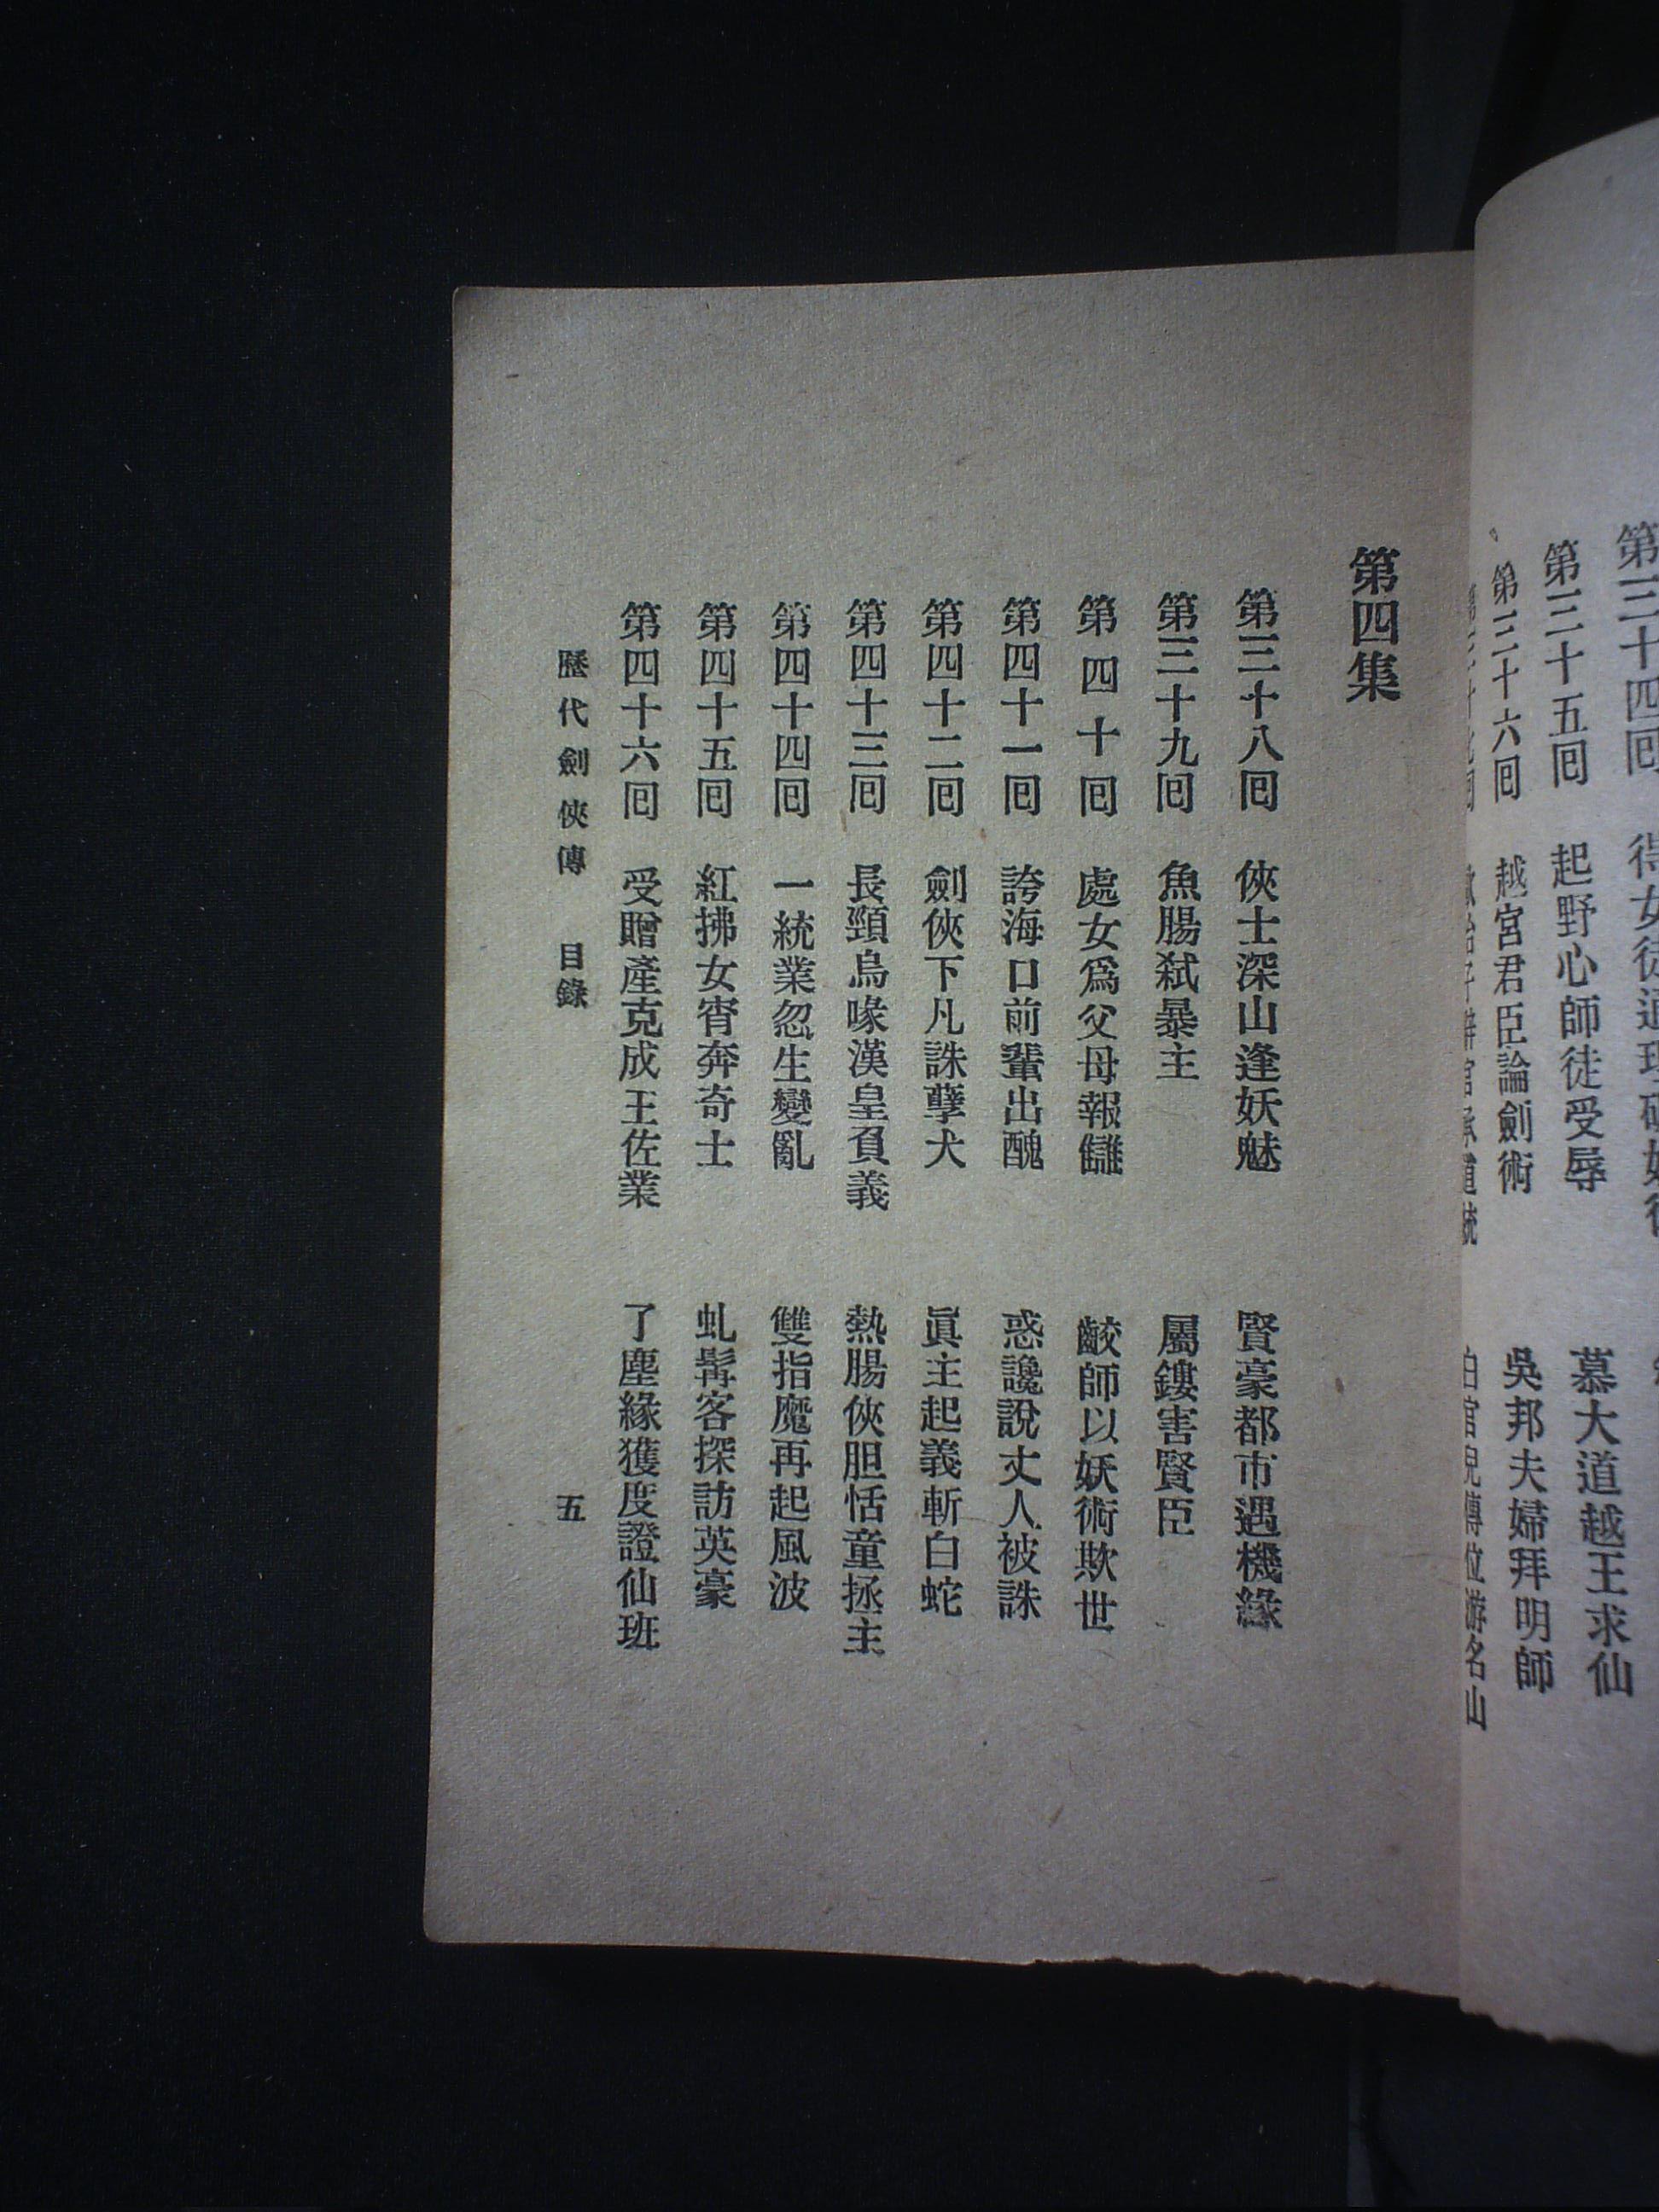 第三十四囘
第三十五囘　起野心師徒受辱　慕大道越王求仙
第三十六囘　越宮君臣論劍術　吳邦夫婦拜明師
第四集
第三十八囘　俠士深山逢妖魅　賢豪都市遇機緣
第三十九囘　魚腸弒暴主　屬鏤害賢臣
第四十囘　處女爲父母報讎　鮫師以妖術欺世
第四十一囘　誇海口前輩出醜　惑讒說丈人被誅
第四十二囘　劍俠下凡誅孽犬　眞主起義斬白蛇
第四十三囘　長頸鳥喙漢皇負義　熱腸俠胆恬童拯主
第四十四囘　一統業忽生變亂　雙指魔再起風波
第四十五囘　紅拂女宵奔奇士　虬髯客探訪英豪
第四十六囘　受贈產克成王佐業　了塵緣獲度證仙班
歷代劍俠傳　目錄　五